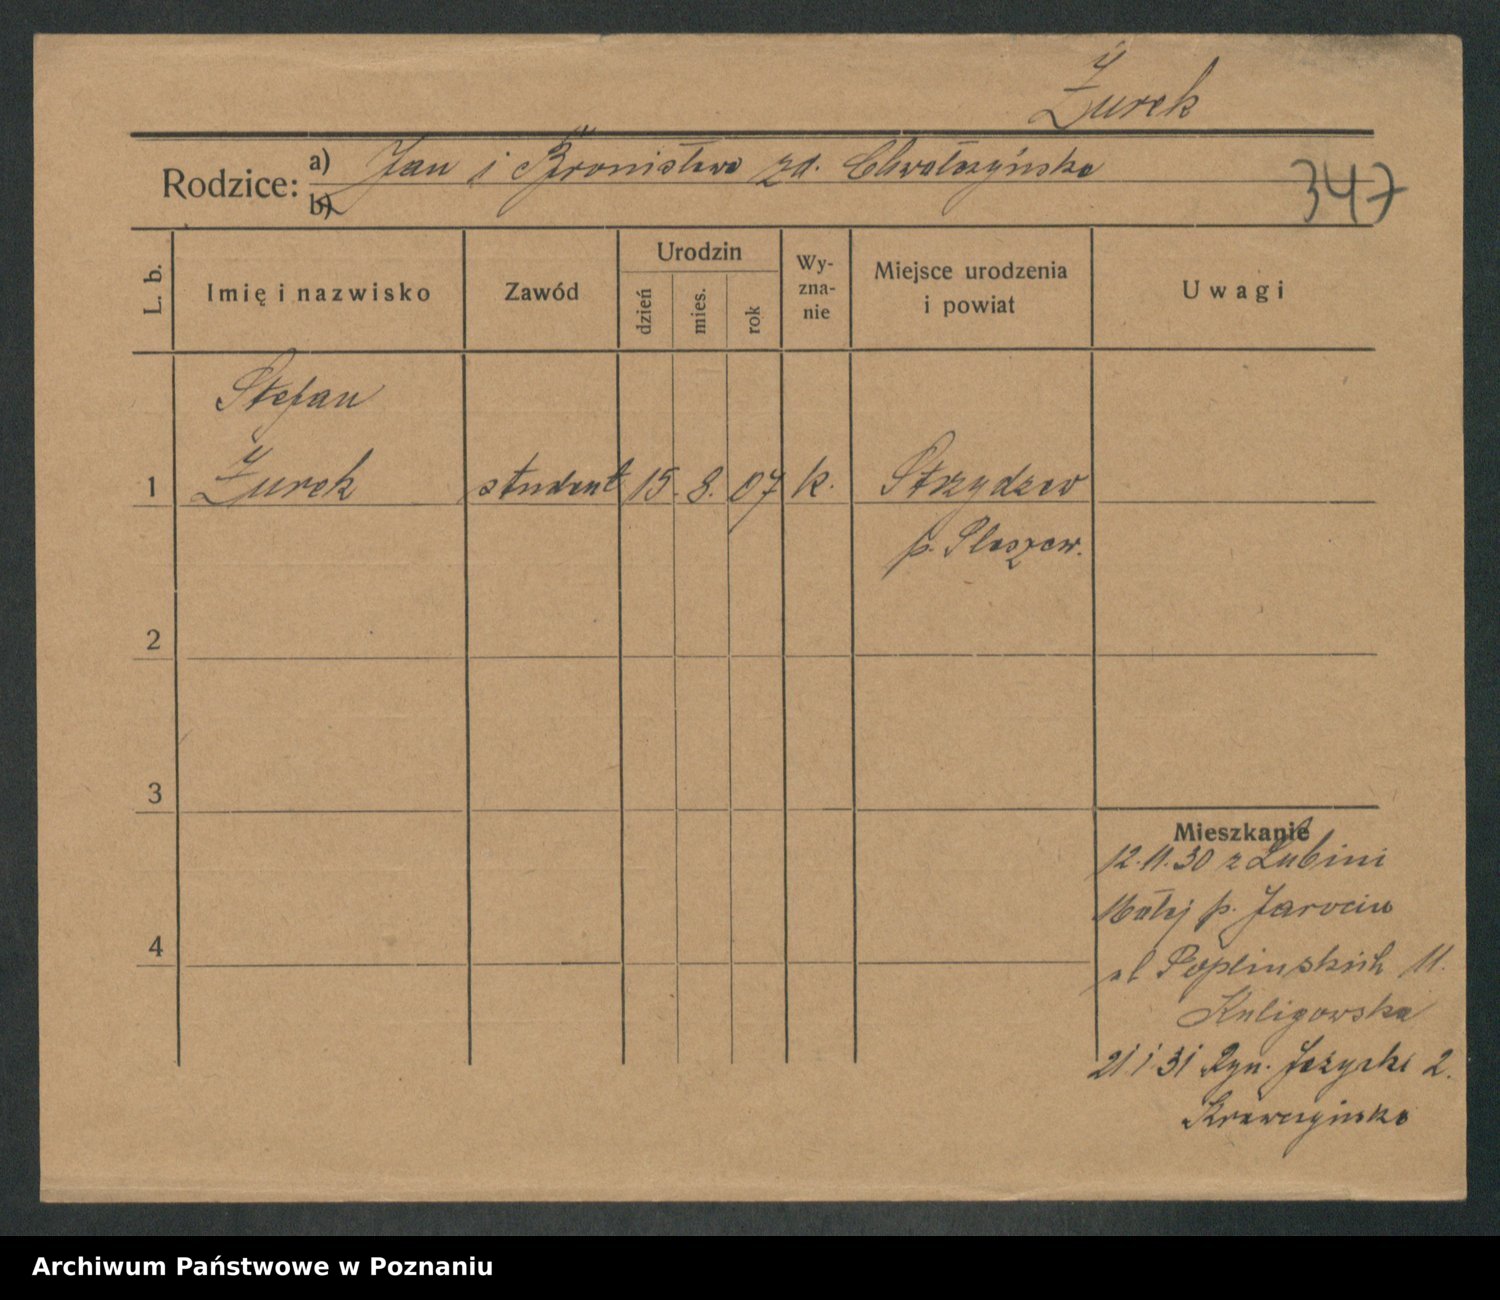 Żurek
Rodzice: a) Jan i Bronisława zd. Chwałczyńska
b)
347
L. b.
Imię i nazwisko
Zawód
Urodzin
dzień
mies.
rok
Wy-
zna-
nie
Miejsce urodzenia
i powiat
Uwagi
Stefan
1 Żurek student 15. 8. 07 k. Strzydzew
p. Pleszew.
2
3
Mieszkanie
12.11.30 z Lubini
Małej p. Jarocin
ul Poplinskich 11.
Kuligowska
4
21 1 31 Ryn. Jeżycki 2.
Krawczyńska
Archiwum Państwowe w Poznaniu